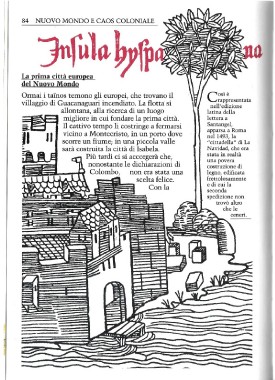 84 NUOVO MONDO E CAOS COLONIALE
Insula hyspana
La prima città europea
del Nuovo Mondo
Ormai i taínos temono gli europei, che trovano il
villaggio di Guacanaguari incendiato. La flotta si
allontana, alla ricerca di un luogo
migliore in cui fondare la prima città.
Il cattivo tempo li costringe a fermarsi
vicino a Montecristo, in un porto dove
scorre un fiume; in una piccola valle
sarà costruita la città di Isabela.
Più tardi ci si accorgerà che,
nonostante le dichiarazioni di
Colombo, non era stata una
scelta felice.
Con la
Così è
rappresentata
nell'edizione
latina della
lettera a
Santangel,
apparsa a Roma
nel 1493, la
"cittadella" di La
Navidad, che era
stata in realtà
una povera
costruzione di
legno, edificata
frettolosamente
e di cui la
seconda
spedizione non
trovò altro
che le
ceneri.